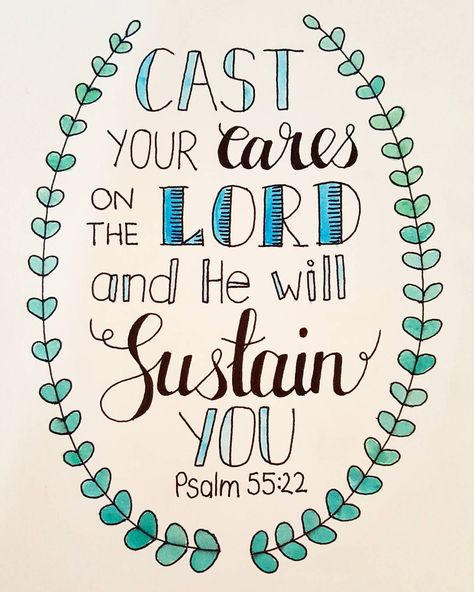 CAST
YOUR Cares
ON
THE LORD
and He will
Sustain
YOU
Psalm 55:22